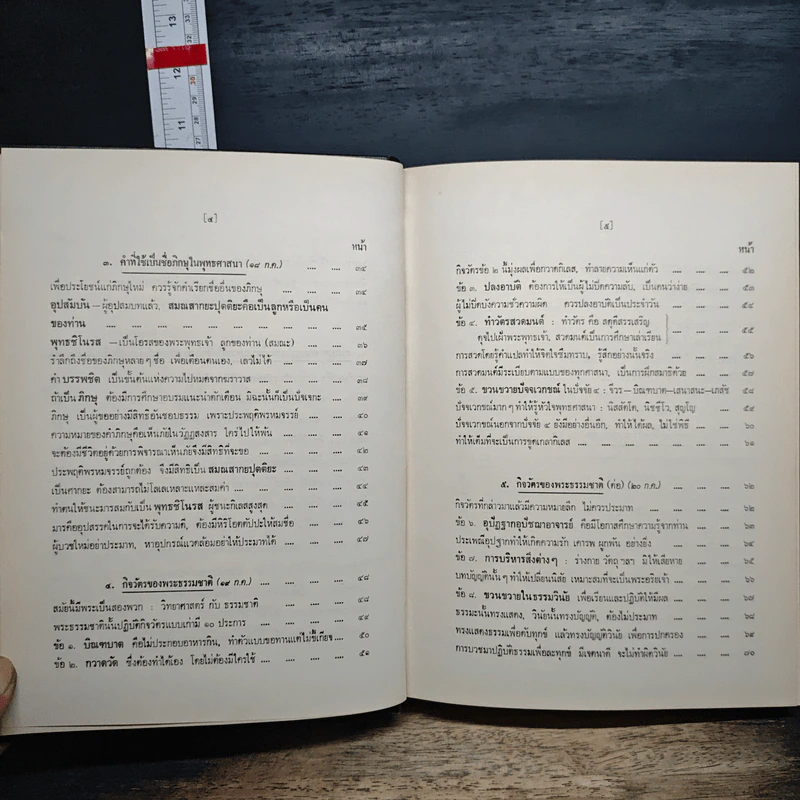 13
12
30
11
28
27
[๔]
หน้า
๓. คำที่ใช้เป็นชื่อภิกษุในพุทธศาสนา (๑๘ ก.ค.) .... .... ๓๔
เพื่อประโยชน์แก่ภิกษุใหม่ ควรรู้จักคำเรียกชื่ออื่นของภิกษุ .... ๓๔
อุปสัมบัน —ผู้อุปสมบทแล้ว, สมณสากยะปุตติยะคือเป็นลูกหรือเป็นคน
ของท่าน .... .... .... .... .... .... .... ๓๕
พุทธชิโนรส —เป็นโอรสของพระพุทธเจ้า ลูกของท่าน (สมณะ) .... ๓๖
รำลึกถึงชื่อของภิกษุหลาย ๆ ชื่อ เพื่อเตือนตนเอง, เลวไม่ได้ .... ๓๗
คำ บรรพชิต เป็นขั้นต้นแห่งความไปหมดจากฆราวาส .... .... ๓๘
ถ้าเป็น ภิกษุ ต้องมีการศึกษาอบรมแนะนำตักเตือน มิฉะนั้นก็เป็นปัจเจกะ ๓๙
ภิกษุ เป็นผู้ขออย่างมีสิทธิอันชอบธรรม เพราะประพฤติพรหมจรรย์ .... ๔๐
ความหมายของคำภิกษุคือเห็นภัยในวัฏฏสงสาร ใคร่ไปให้พ้น .... ๔๑
จะต้องมีชีวิตอยู่ด้วยการพิจารณาเห็นภัยจึงมีสิทธิที่จะขอ .... .... ๔๒
ประพฤติพรหมจรรย์ถูกต้อง จึงมีสิทธิเป็น สมณสากยปุตติยะ .... .... ๔๓
เป็นศากยะ ต้องสามารถไม่โลเลเหลาะแหละสมคำ .... .... .... ๔๔
ทำตนให้ชนะมารสมกับเป็น พุทธชิโนรส ผู้ชนะกิเลสสูงสุด .... .... ๔๕
มารคืออุปสรรคในการจะได้รับความดี, ต้องมีหิริโอตตัปปะให้สมชื่อ .... ๔๖
ผู้บวชใหม่อย่าประมาท, หาอุปกรณ์แวดล้อมอย่าให้ประมาทได้ .... ๔๗
๔. กิจวัตรของพระธรรมชาติ (๑๙ ก.ค.) .... .... .... ๔๘
สมัยนี้มีพระเป็นสองพวก : วิทยาศาสตร์ กับ ธรรมชาติ .... .... ๔๘
พระธรรมชาตินั้นปฏิบัติกิจวัตรแบบเก่ามี ๑๐ ประการ .... .... ๔๙
ข้อ ๑. บิณฑบาต คือไม่ประกอบอาหารกิน, ทำตัวแบบขอทานแต่ไม่ขี้เกียจ .... ๕๐
ข้อ ๒. กวาดวัด ซึ่งต้องทำได้เอง โดยไม่ต้องมีใครใช้ .... .... .... ๕๑
[๕]
หน้า
กิจวัตรข้อ ๒ นี้มุ่งผลเพื่อกวาดกิเลส, ทำลายความเห็นแก่ตัว .... .... ๕๒
ข้อ ๓. ปลงอาบัติ ต้องการให้เป็นผู้ไม่ปิดความลับ, เป็นคนว่าง่าย .... ๕๓
ผู้ไม่ปิดบังความชั่วความผิด ควรปลงอาบัติเป็นประจำวัน .... .... ๕๔
ข้อ ๔. ทำวัตรสวดมนต์ : ทำวัตร คือ สดุดีสรรเสริญ
ดุจไปเฝ้าพระพุทธเจ้า, สวดมนต์เป็นการศึกษาเล่าเรียน .... .... ๕๕
การสวดโดยรู้คำแปลทำให้จิตใจซึมทราบ, รู้สึกอย่างนั้นจริง .... .... ๕๖
การสวดมนต์มีระเบียบตามแบบของทุกศาสนา, เป็นการฝึกสมาธิด้วย .... ๕๗
ข้อ ๕. ขวนขวายปัจจเวกขณ์ ในปัจจัย ๔ : จีวร—บิณฑบาต—เสนาสนะ—เภสัช ๕๘
ปัจจเวกขณ์มาก ๆ ทำให้รู้หัวใจพุทธศาสนา : นิสสัตโต, นิชชีโว, สุญโญ .... ๕๙
ปัจจเวกขณ์นอกจากปัจจัย ๔ ยังมีอย่างอื่นอีก, ทำให้ได้ผล, ไม่ใช่พิธี .... ๖๐
ทำให้เต็มที่จะเป็นการขูดเกลากิเลส .... .... .... .... .... ๖๑
๕. กิจวัตรของพระธรรมชาติ (ต่อ) (๒๐ ก.ค.) .... .... .... ๖๒
กิจวัตรที่กล่าวมาแล้วมีความหมายลึก ไม่ควรประมาท .... .... .... ๖๒
ข้อ ๖. อุปัฏฐากอุปัชฌายอาจารย์ คือมีโอกาสศึกษาความรู้จากท่าน .... ๖๓
ประเพณีอุปัฏฐากทำให้เกิดความรัก เคารพ ผูกพัน อย่างยิ่ง .... .... ๖๔
ข้อ ๗. การบริหารสิ่งต่าง ๆ : ร่างกาย วัตถุ ฯลฯ มิให้เสียหาย .... .... ๖๕
บทบัญญัตินั้น ๆ ทำให้เปลี่ยนนิสัย เหมาะสมที่จะเป็นพระอริยเจ้า .... ๖๖
ข้อ ๘. ขวนขวายในธรรมวินัย เพื่อเรียนและปฏิบัติให้มีผล .... .... ๖๗
ธรรมะนั้นทรงแสดง, วินัยนั้นทรงบัญญัติ, ต้องไม่ประมาท .... .... ๖๘
ทรงแสดงธรรมเพื่อดับทุกข์ แล้วทรงบัญญัติวินัย เพื่อการปกครอง .... ๖๙
การบวชมาปฏิบัติธรรมเพื่อละทุกข์ มีเจตนาดี จะไม่ทำผิดวินัย .... .... ๗๐